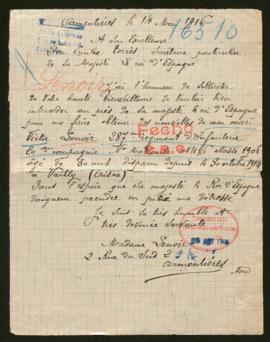 Armentières le 14 Mai 1916
16510
A Son Excellence
Torrès Secrétaire particulier
de Sa Majesté le roi d'Espagne
Lenoir
j'ai l'honneur de solliciter
de votre haute bienveillance de vouloir bien
intercéder de sa majesté le roi d'Espagne
pour me faire obtenir des nouvelles de mon mari
Victor Lenoir Régiment d'Infanterie
Fecho
compagnie classe 1906
âgé de 30 ans disparu depuis le 30 octobre 1914
à Vailly (Aisne)
Dans l'espoir que sa majesté le Roi d'Espagne
daignera prendre en pitié ma détresse
Je suis la très humble et
très dévouée Servante
Madame Lenoir
2 Rue du Sud 2
Armentières
Nord